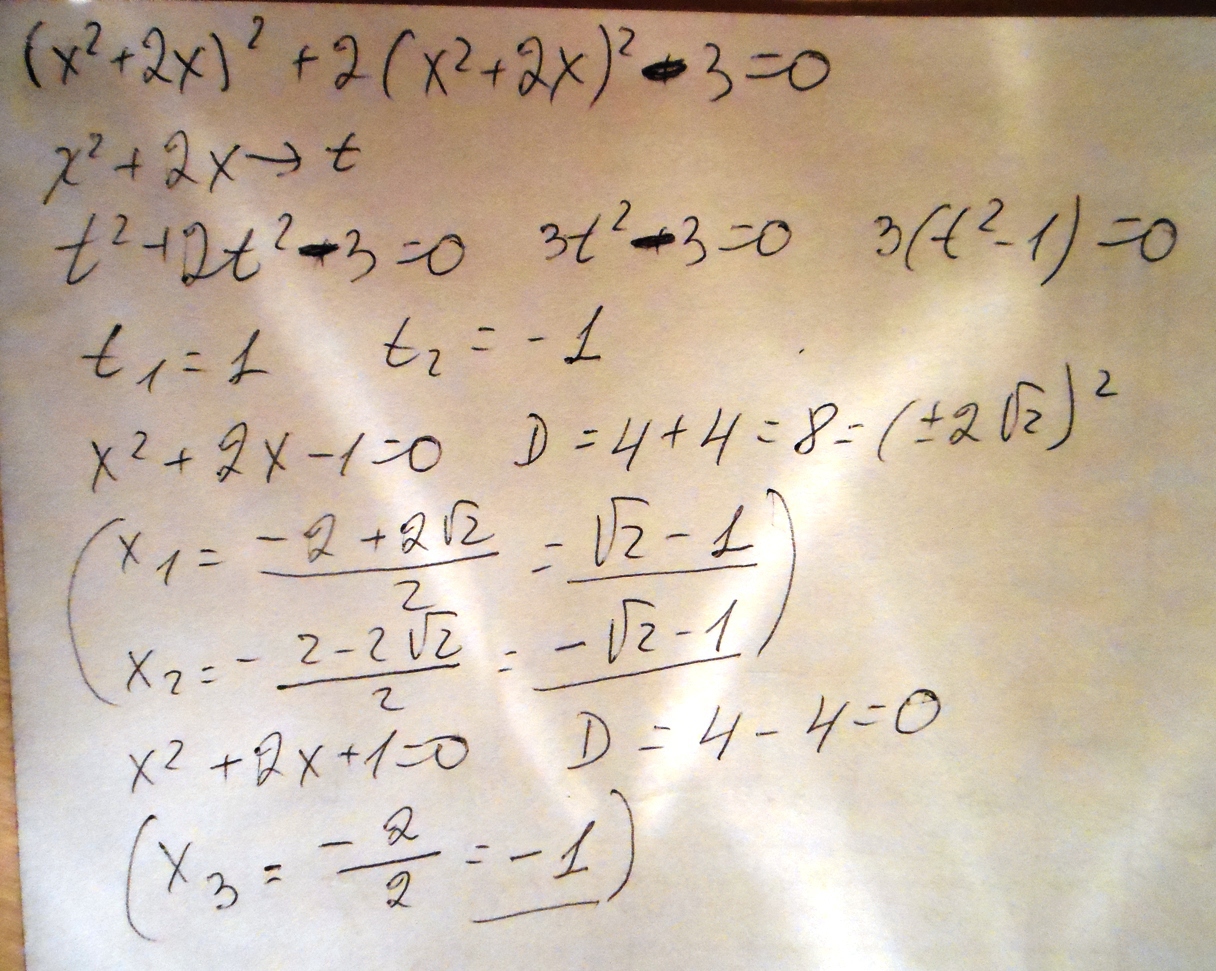 (x²+2x)² +2(x²+2x)²-3=0
x²+2x→t
t²+2t²-3=0 3t²-3=0 3(t²-1)=0
t₁=1 t₂=-1
x²+2x-1=0 D=4+4=8=(±2√2)²
(x₁= (-2+2√2)/2 = √2-1
x₂=- (2-2√2)/2 = -√2-1)
x²+2x+1=0 D=4-4=0
(x₃= -2/2 = -1)